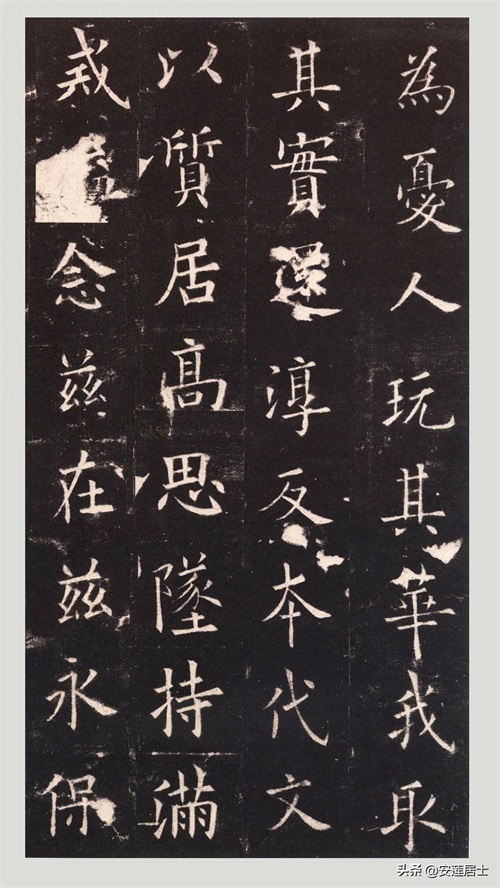 為憂人玩其華我取
其實還淳反夲代文
以質居高思墜持滿
戒念茲在茲永保
头条 @安莲居士